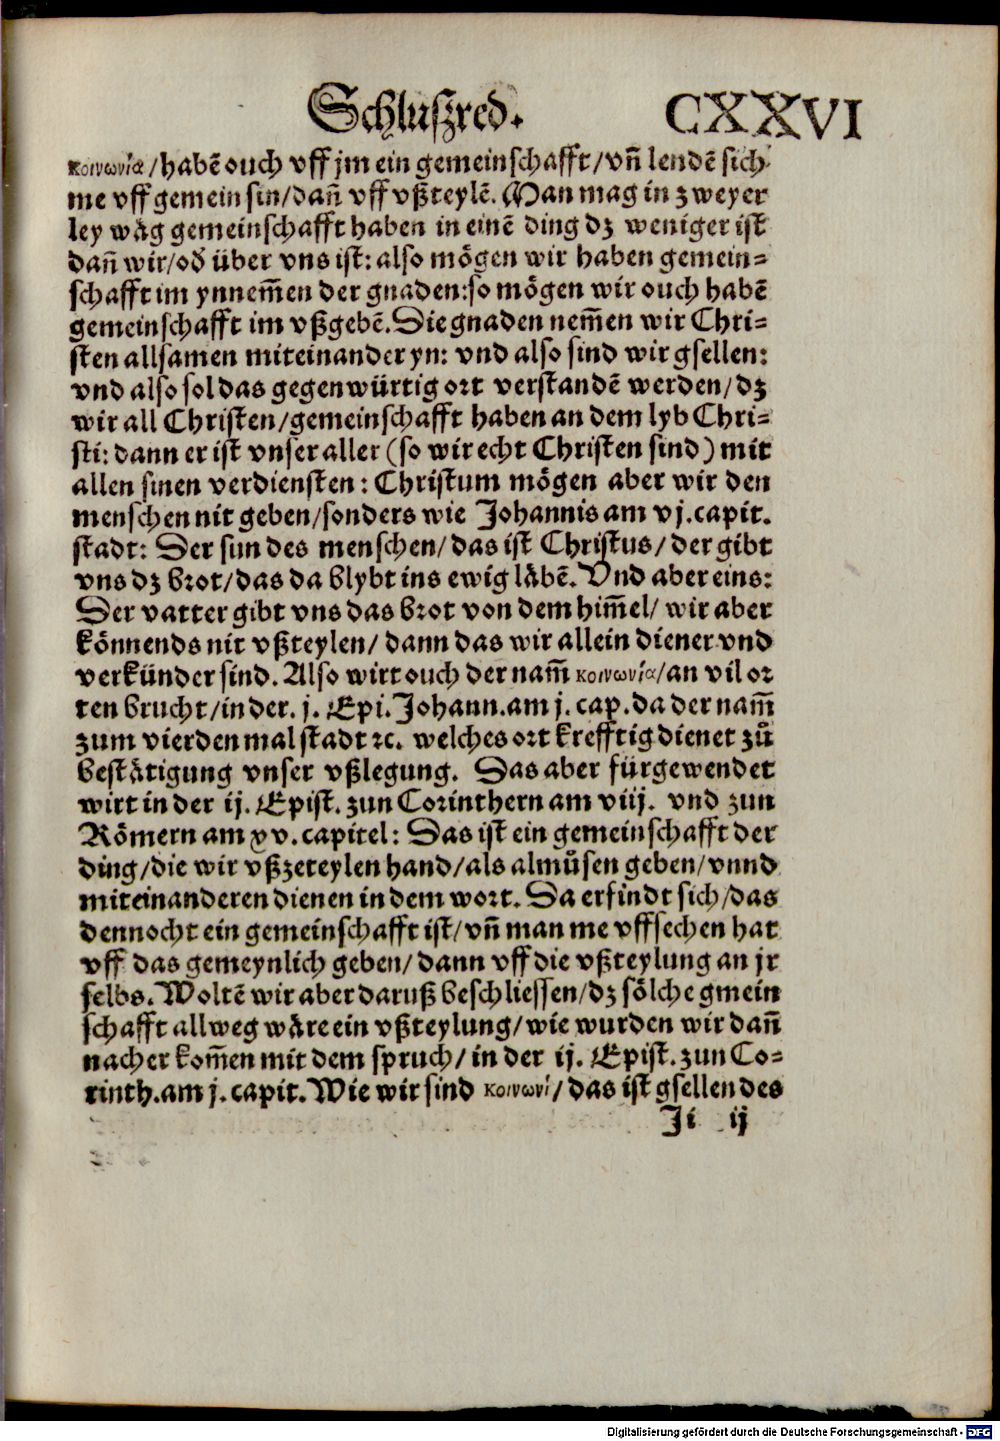 Schluſzred. CXXVI
κοινωνία/habē ouch vff jm ein gemeinſchafft/vñ lendē ſich
me vff gemein ſin/dañ vff vßteylē. Man mag in zweyer
ley wäg gemeinſchafft haben in einē ding dz weniger iſt
dañ wir/oď über vns iſt: alſo mögen wir haben gemein=
ſchafft im ynnem̄en der gnaden:ſo mögen wir ouch habē
gemeinſchafft im vßgebē. Die gnaden nem̄en wir Chri=
ſten allſamen miteinander yn: vnd alſo ſind wir gſellen:
vnd alſo ſol das gegenwürtig ort verſtandē werden/dz
wir all Chriſten/gemeinſchafft haben an dem lyb Chri=
ſti: dann er iſt vnſer aller (ſo wir echt Chriſten ſind) mit
allen ſinen verdienſten: Chriſtum mögen aber wir den
menſchen nit geben/ſonders wie Johannis am vj.capit.
ſtadt: Der ſun des menſchen/das iſt Chriſtus/der gibt
vns dz brot/das da blybt ins ewig läbē. Vnd aber eins:
Der vatter gibt vns das brot von dem him̄el/wir aber
könnends nit vßteylen/dann das wir allein diener vnd
verkünder ſind. Alſo wirt ouch der nam̄ κοινωνία/an vil or
ten brucht/in der. j. Epi. Johann.am j. cap. da der nam̄
zum vierden mal ſtadt ꝛc. welches ort krefftig dienet zů
beſtätigung vnſer vßlegung. Das aber fürgewendet
wirt in der ij. Epiſt. zun Corinthern am viij. vnd zun
Römern am xv. capitel: Das iſt ein gemeinſchafft der
ding/die wir vßzeteylen hand/als almůſen geben/vnnd
miteinanderen dienen in dem wort. Da erfindt ſich/das
dennocht ein gemeinſchafft iſt/vñ man me vffſechen hat
vff das gemeynlich geben/dann vff die vßteylung an jr
ſelbs. Woltē wir aber daruß beſchlieſſen/dz ſölche gmein
ſchafft allweg wäre ein vßteylung/wie wurden wir dañ
nacher kom̄en mit dem ſpruch/in der ij. Epiſt. zun Co=
rinth.am j. capit. Wie wir ſind κοινωνί/das iſt gſellen des
Ji ij
Digitalisierung gefördert durch die Deutsche Forschungsgemeinschaft - DFG